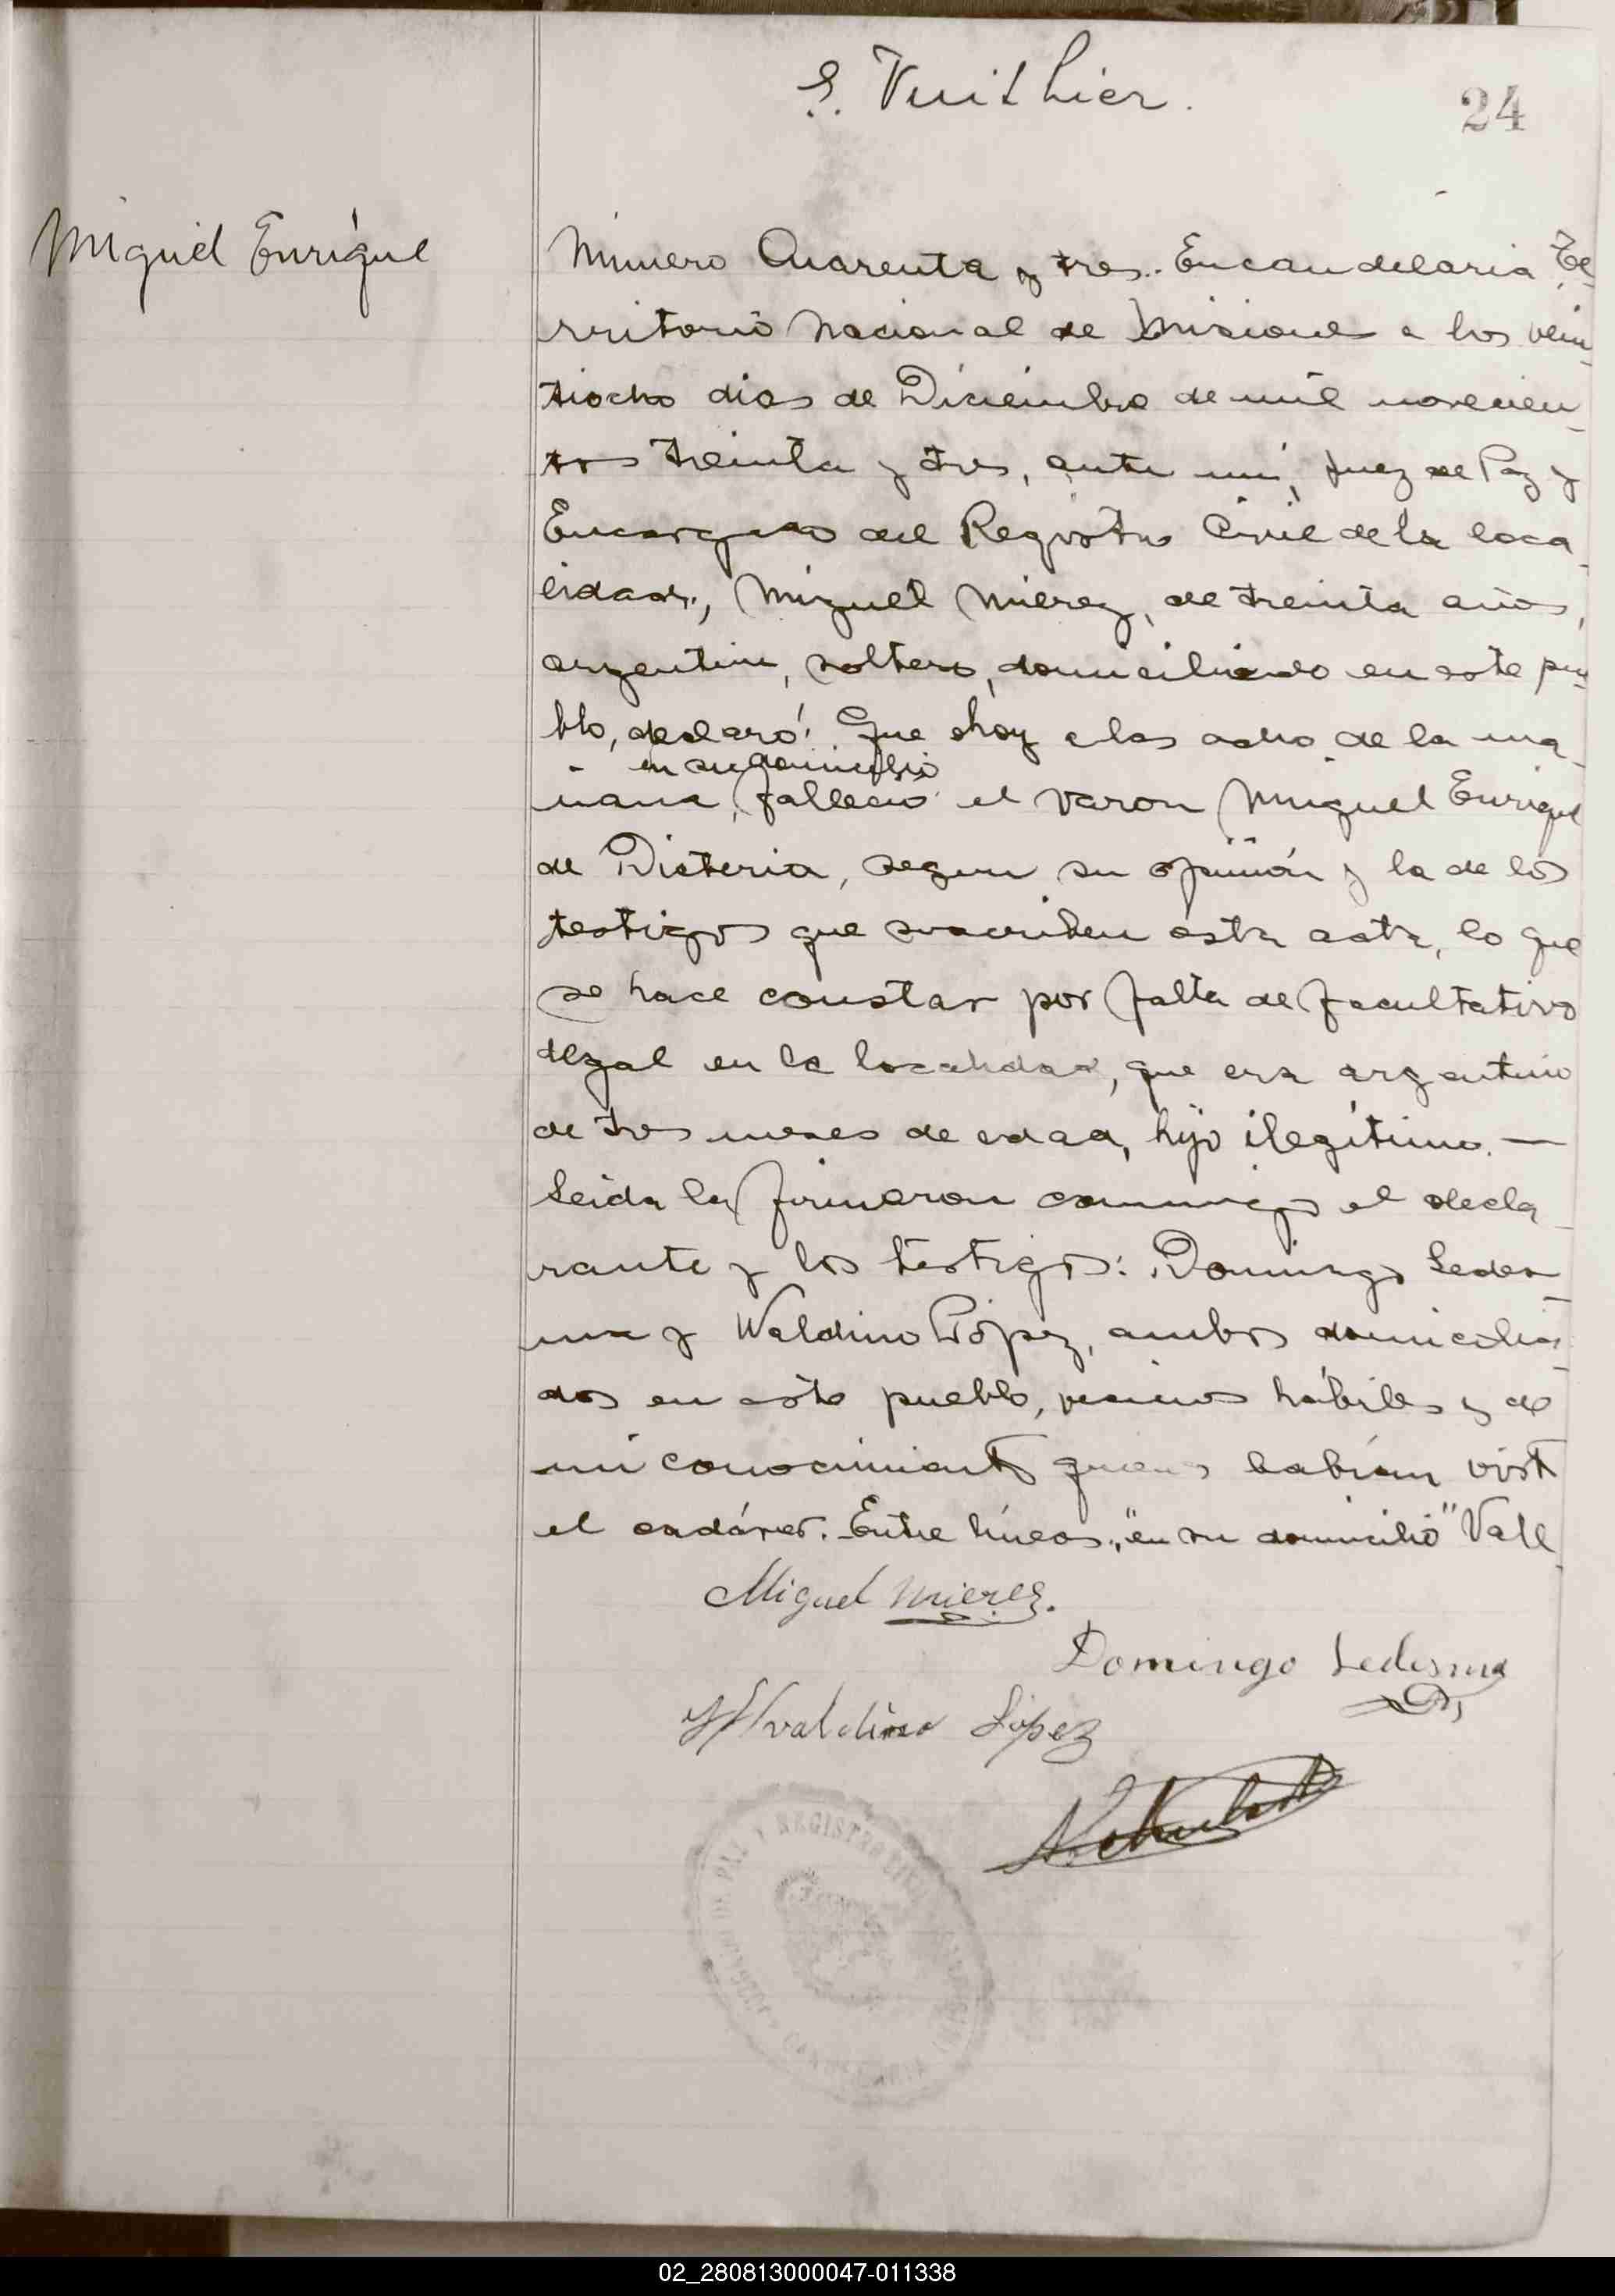 E. Vuithier.
24
Miguel Enrique
Número Cuarenta y tres. En candelaria Te-
rritorio Nacional de Misiones a los vein-
tiocho dias de Diciembre de mil novecien-
tos treinta y tres, ante mi, Juez de Paz y
Encargado del Registro Civil de la loca-
lidad, Miguel Mierez, de treinta años,
argentino, soltero, domiciliado en este pue-
blo, declaró: Que hoy a las ocho de la ma-
en su domicilio
ñana, falleció el varon Miguel Enrique
de Disteria, segun su opinión y la de los
testigos que suscriben esta acta, lo que
se hace constar por falta de facultativo
legal en la localidad, que era argentino
de tres meses de edad, hijo ilegítimo. —
Leida la firmaron conmigo el decla-
rante y los testigos: Domingo Ledes-
ma y Waldino López, ambos domicilia-
dos en este pueblo, vecinos hábiles y de
mi conocimiento quienes habían visto
el cadáver. Entre líneas: "en su domicilio" Vale
Miguel Mierez.
Domingo Ledesma
Waldino López
JUZGADO DE PAZ Y REGISTRO CIVIL
02_280813000047-011338